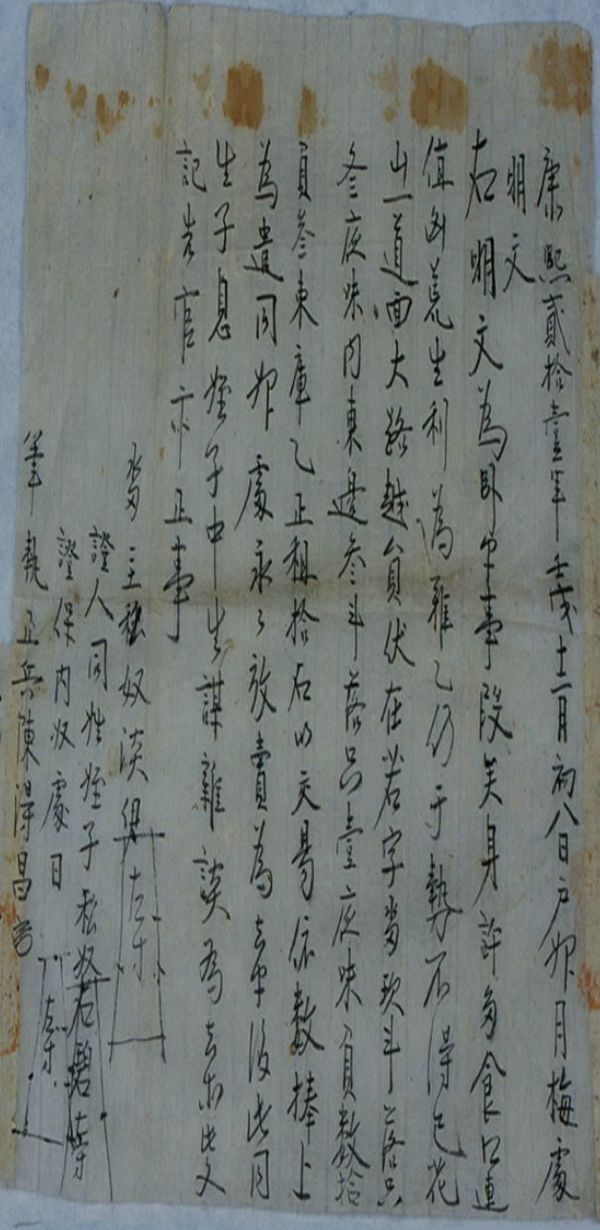 康熙貳拾壹年壬戌十二月初八日戶婢月梅處
明文
右明文爲卧乎事段矣身許多食口連
值凶荒生利爲難乙仍于勢不得已花
山一道面大路越員伏在若字畓玖斗落只
冬庫味內東邊參斗落只壹庫味負數拾
負參束庫乙正租拾石以交易依數捧上
爲遣同婢處永永放賣爲去乎後此同
生子息姪子中生謀雜談爲去等此文
記告官卞正事
畓主私奴漢 左寸
證人同姓姪子私奴石碧左寸
證保內奴處目 左寸
筆執正兵陳得昌